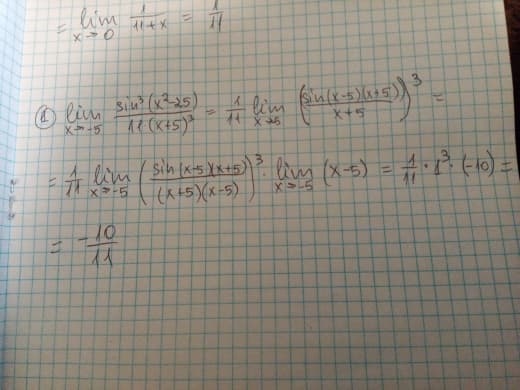 = lim x→0 1/(11+x) = 1/11
① lim x→-5 sin³(x²-25)/(11·(x+5)³) = 1/11 lim x→5 (sin(x-5)(x+5))/(x+5))³ =
= 1/11 lim x→-5 (sin(x-5)(x+5)/((x+5)(x-5)))³ · lim x→-5 (x-5) = 1/11 · 1³ · (-10) =
= -10/11